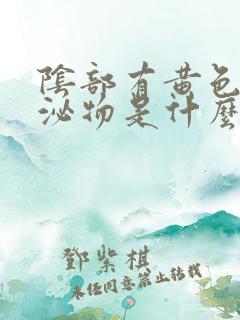 陰部有黃色
泌物是什麼
鄧紫棋
未經同意禁止轉載